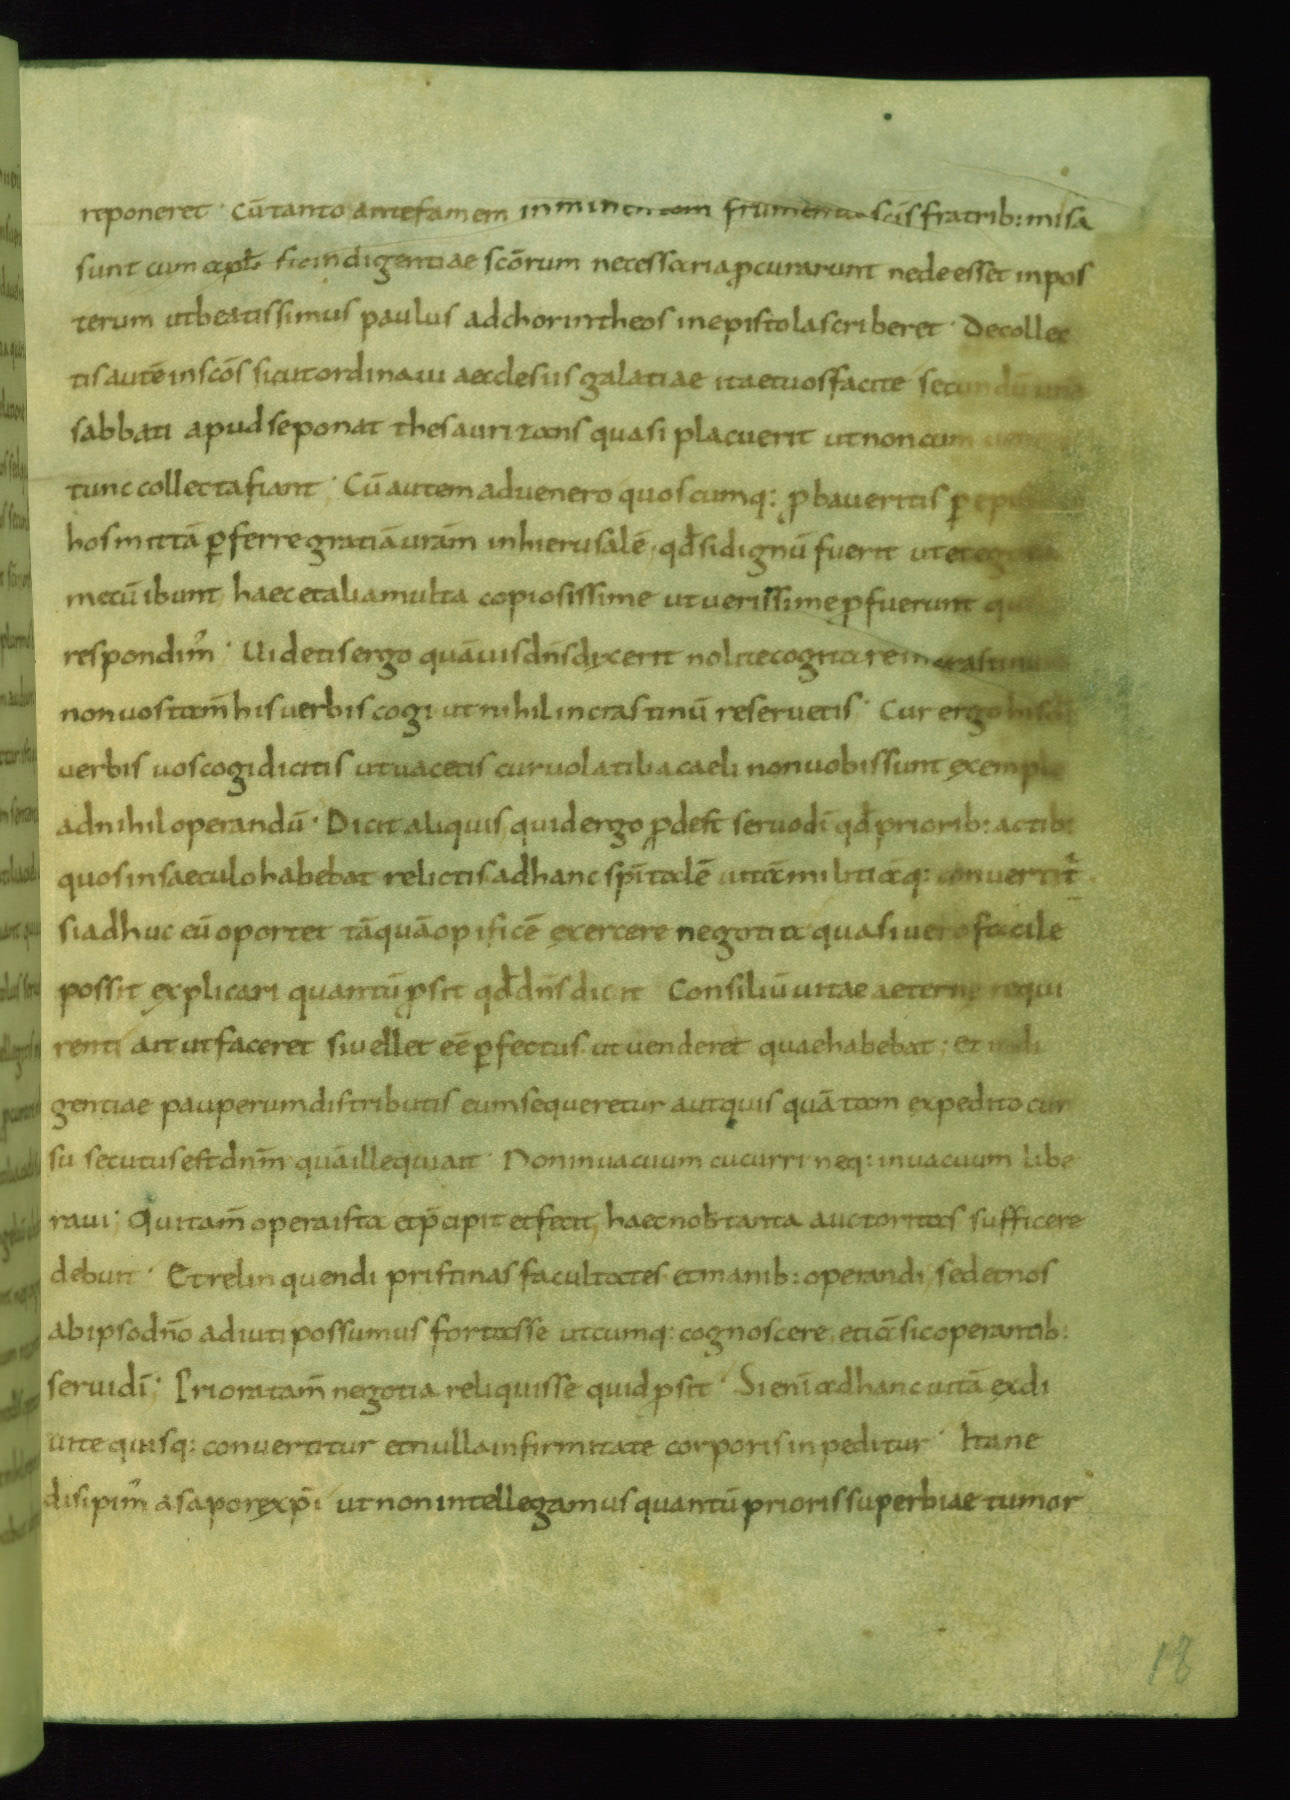 reponeret · Cū tanto ante famem inminentem frumenta scīs fratrib: misa
sunt cum apłi sic indigentiae scōrum necessaria pcurarunt ne deesset in pos
terum ut beatissimus paulus ad chorintheos in epistola scriberet · De collec
tis autē in scōs sicut ordinaui aecclesiis galatiae ita et uos facite secundū unā
sabbati apud se ponat thesaurizans quasi placuerit ut non cum
tunc collecta fiant · Cū autem advenero quoscumq: pbaveritis p
hos mittā pferre gratiā urām in hierusalē, qđ si dignū fuerit ut et ego
mecū ibunt, haec et alia multa copiosissime ut uerissime pfuerunt
respondim᾽ · Uidetis ergo quāuis dn̄s dixerit nolite cogitare in crastinum
non uos tam̄ his verbis cogi ut nihil in crastinū reseruetis · Cur ergo
verbis uos cogi dicitis ut vacetis cur uolatilia caeli non uobis sunt exemplo
ad nihil operandū · Dicit aliquis, quid ergo pdest seruo dī qđ priorib: actib:
quos in saeculo habebat relictis ad hanc spītalē uitā militiāq: convertit᾽
si adhuc eū oportet tāquā opificē exercere negotia quasi uero facile
possit explicari quantū psit qđ dn̄s dicit Consiliū uitae aeterne requi
renti ait ut faceret si uellet eē pfectus ut uenderet quae habebat; et indi
gentiae pauperum distributis eum sequeretur aut quis quā tam expedito cur
su secutus est dn̄m quā ille qui ait · Non in uacuum cucurri neq: in uacuum labo
raui; Qui tam̄ opera ista et pcipit et fecit, haec nob tanta auctoritas sufficere
debuit · Et relinquendi pristinas facultates et manib: operandi, sed et nos
ab ipso dn̄o adiuti possumus fortasse utcumq: cognoscere, etiā sic operantib:
serui dī · Priora tam̄ negotia reliquisse quid psit · Si enī ad hanc uitā ex di
uite quisq: convertitur et nulla infirmitate corporis inpeditur · Itane
disipim᾽ a sapore xp̄i ut non intellegamus quantū prioris superbiae tumor
18